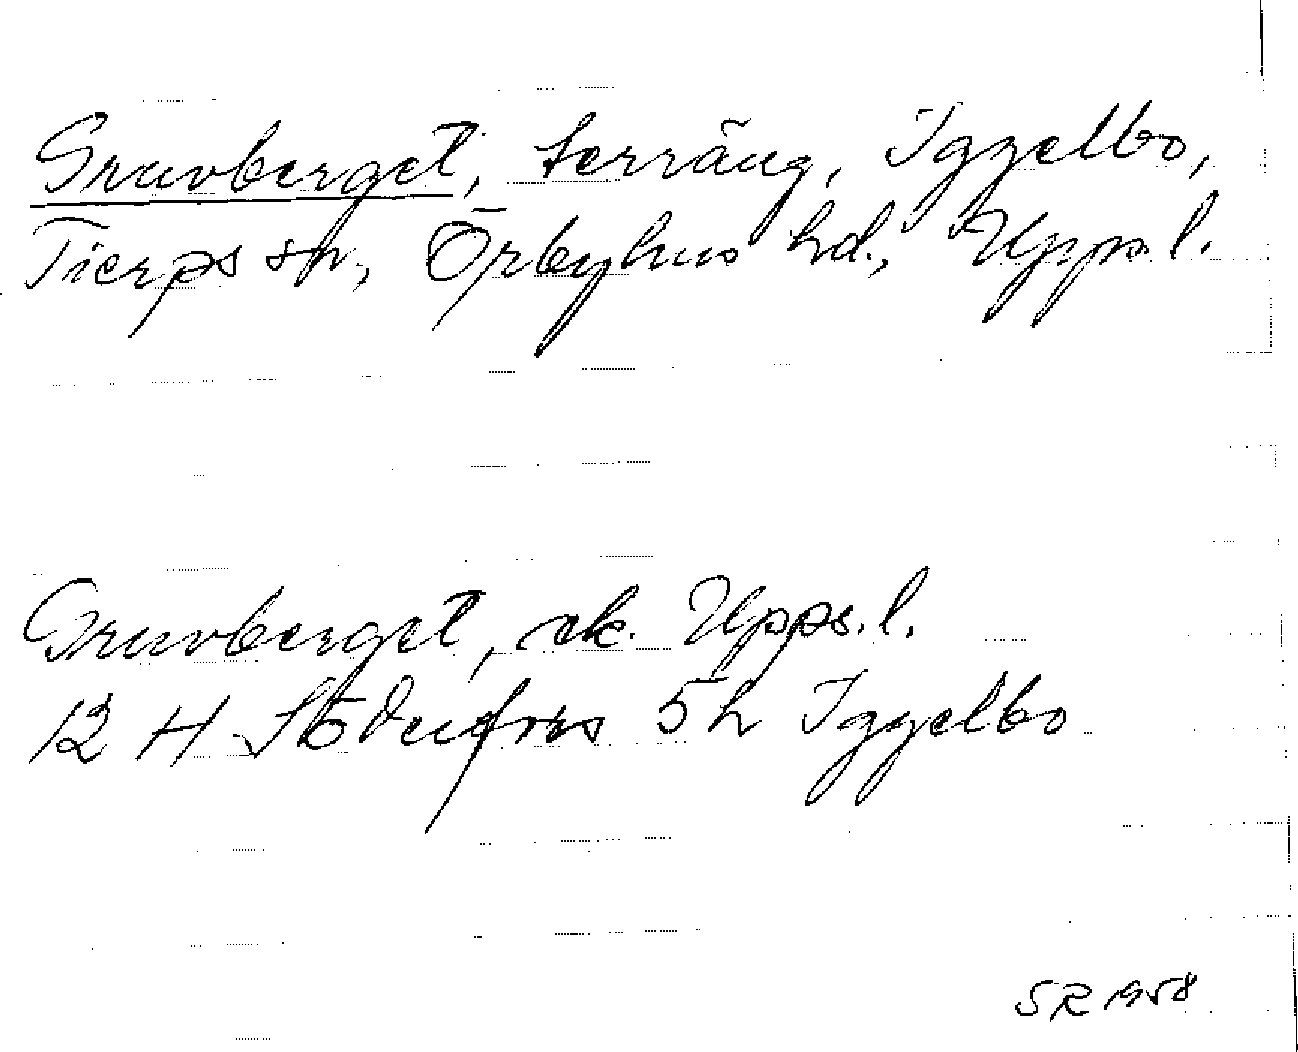 Gruvberget, terräng, Iggelbo,
Tierps sn, Örbyhus hd., Uppsl.
Gruvberget, ek. Upps.l.
12 H Söderfors 5h Iggelbo
SR 1958